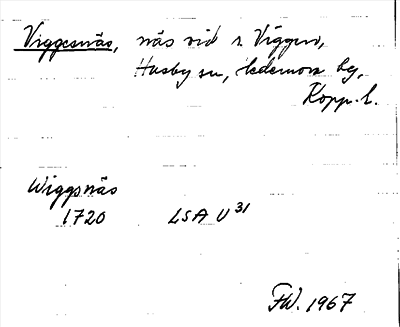 Viggesnäs, näs vid s. Viggen,
Husby sn, Hedemora tg,
Kopp. l.
Wiggsnäs
1720 LSA U 31
FW. 1967